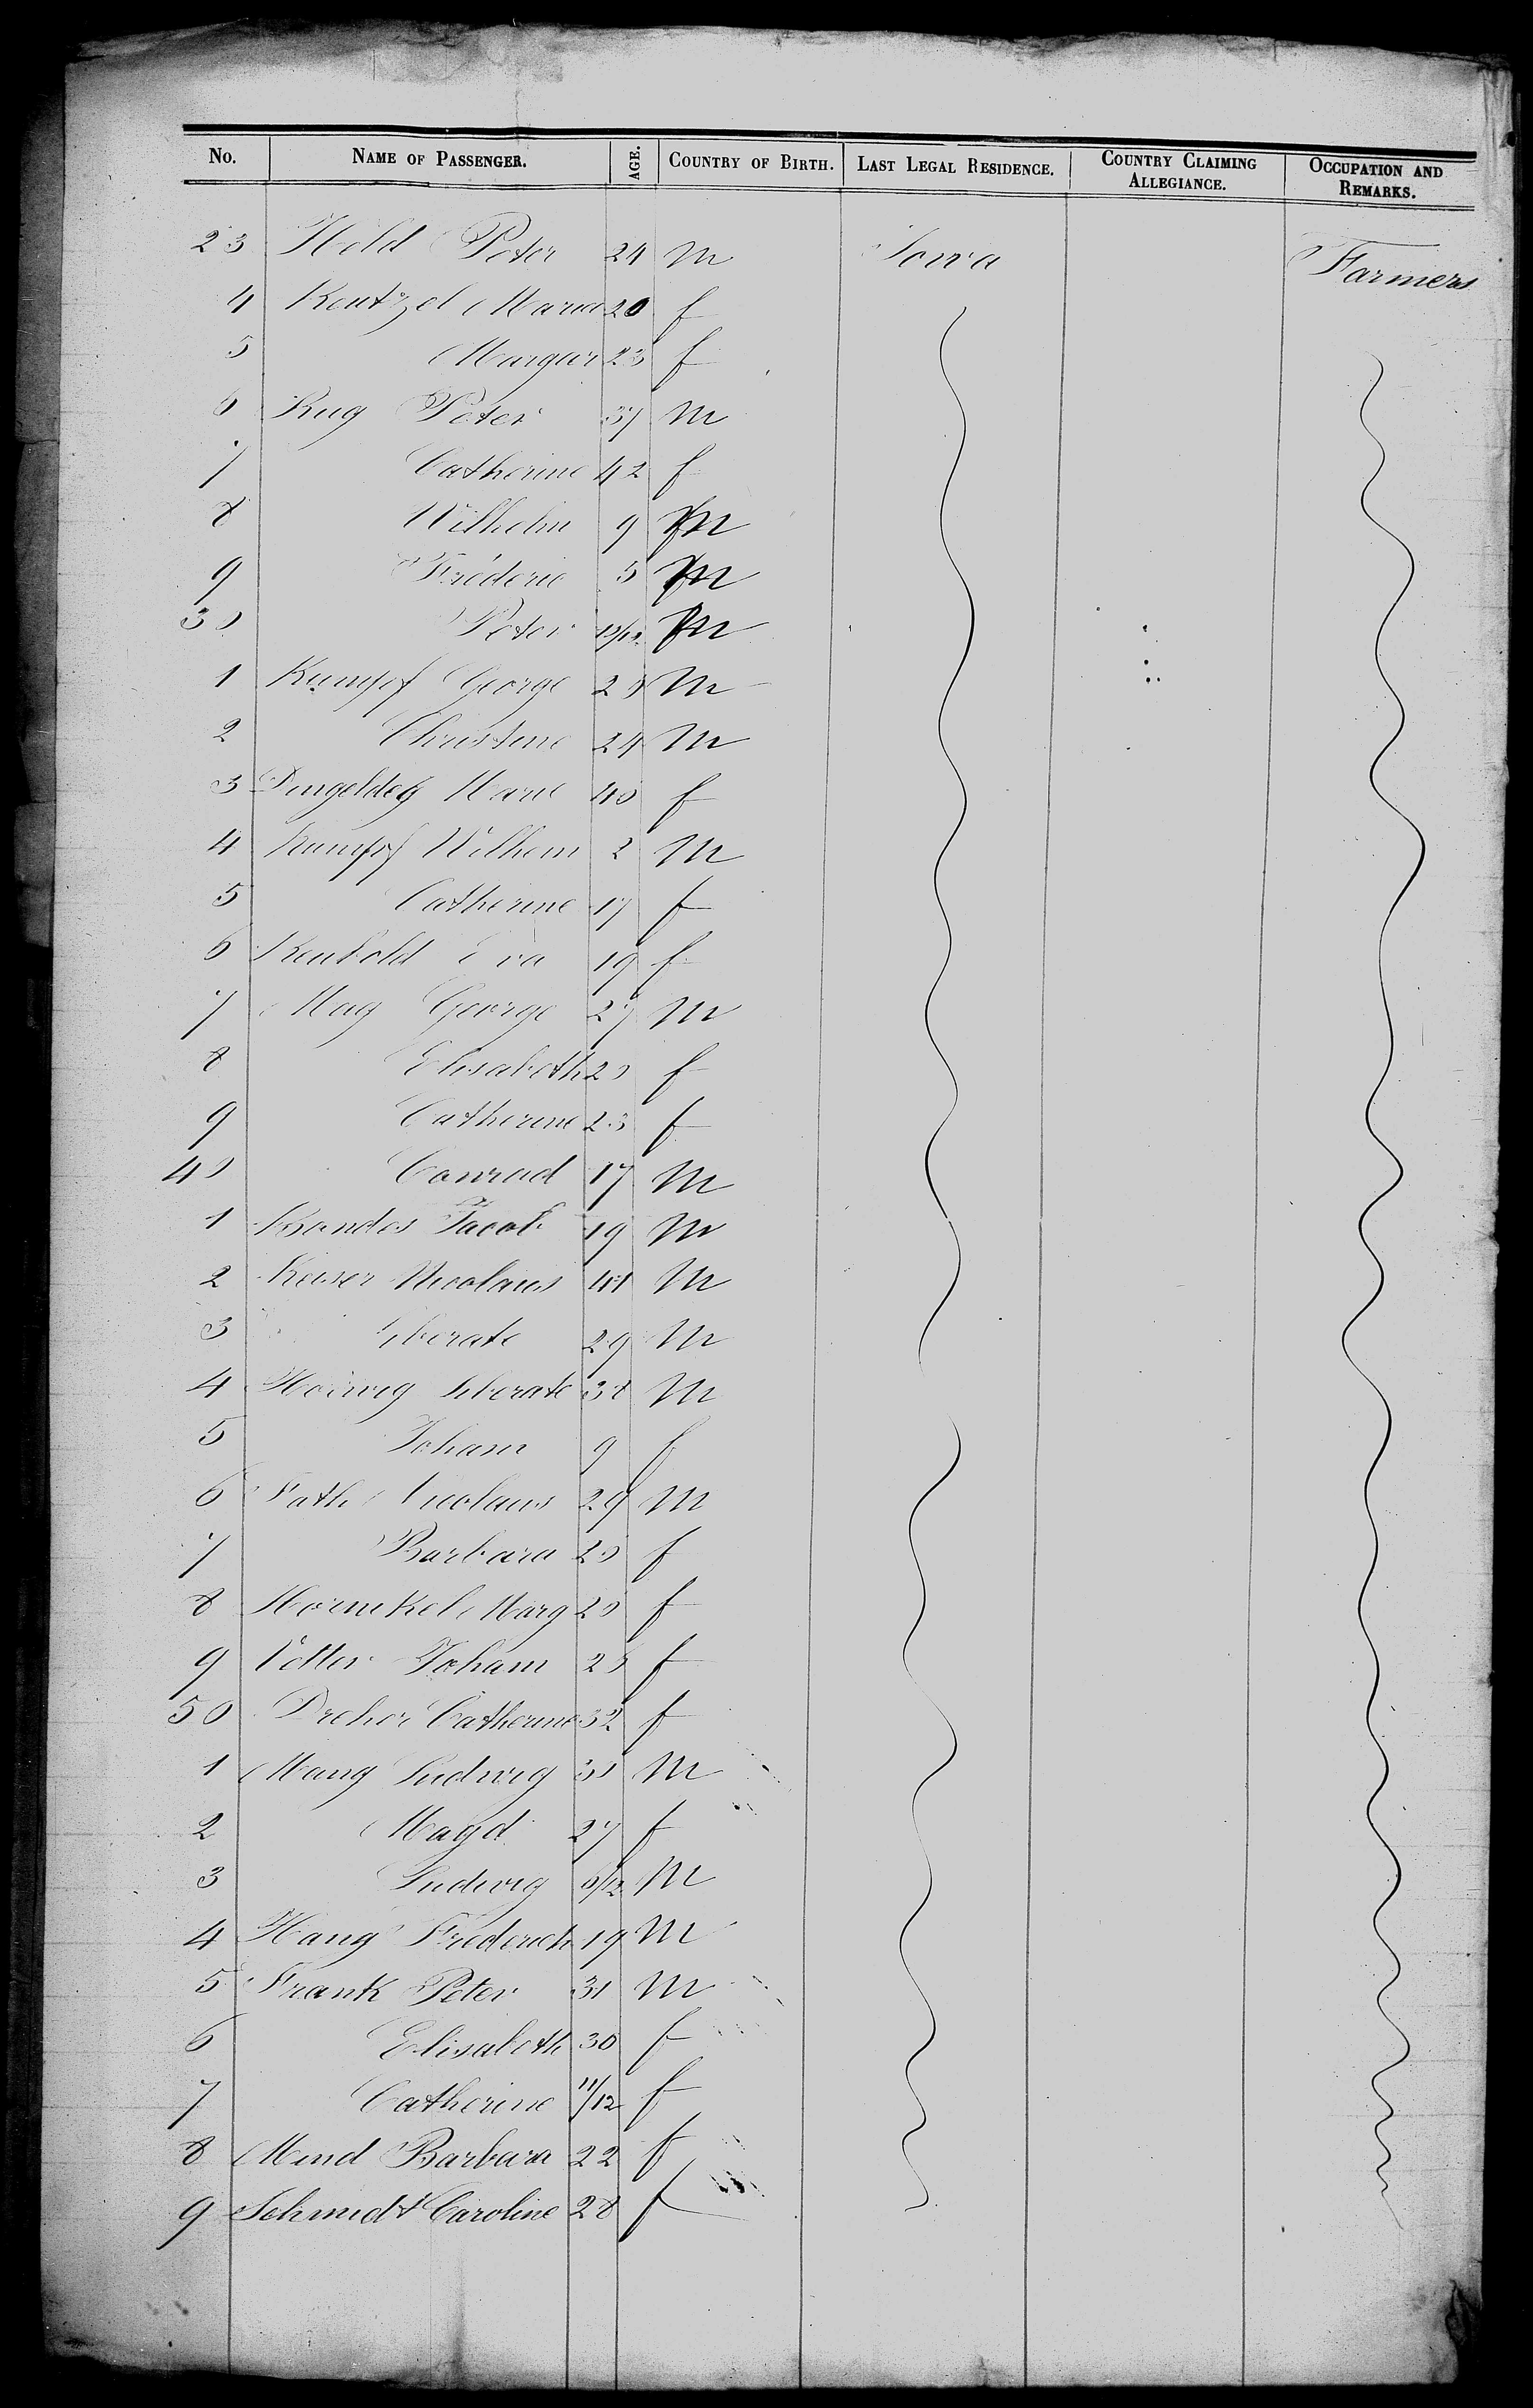 No. NAME OF PASSENGER. AGE. COUNTRY OF BIRTH. LAST LEGAL RESIDENCE. COUNTRY CLAIMING ALLEGIANCE. OCCUPATION AND REMARKS.
23 Held Peter 24 m Iowa Farmers
4 Keutzel Maria 20 f
5 Margar 23 f
6 Rug Peter 37 m
7 Catherine 42 f
8 Wilhelm 9 m
9 Fréderic 5 m
30 Peter m
1 Kumpf George m
2 Christine 24 m
3 Dingeldey Marie 40 f
4 Kumpf Wilhem 2 m
5 Catherine 17 f
6 Eva 19 f
7 May George 27 m
8 Elisabeth 20 f
9 Catherine 23 f
40 Conrad 17 m
1 Jacob 19 m
2 Keiser Nicolaus 41 m
3 liberate 29 m
4 liberate 38 m
5 Joham 9 f
6 Fath Nicolaus 29 m
7 Barbara 20 f
8 Marg 20 f
9 Vetter Joham f
50 Dreher Catherine 32 f
1 Mang Ludwig m
2 Magd 27 f
3 Ludwig 6/12 m
4 Hang Frederich 19 m
5 Frank Peter 31 m
6 Elisabeth 30 f
7 Catherine 11/12 f
8 Mend Barbara 22 f
9 Schmidt Caroline 28 f